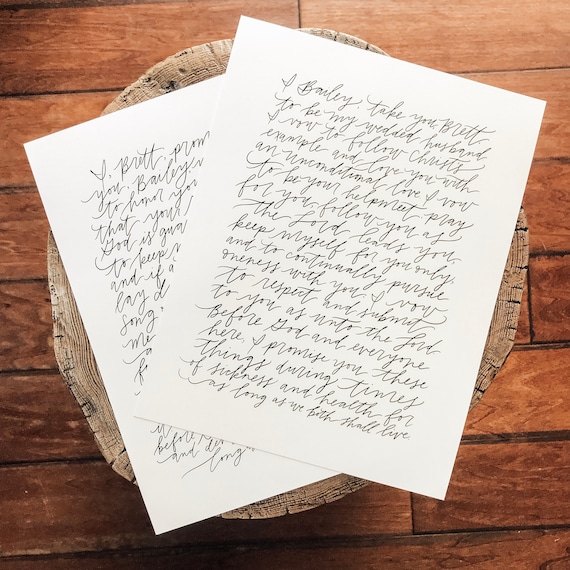 I, Brett, prom
you, Bailey,
to honor
that your
God is gua
to keep
and if
lay d
song,
me
before
and
long
I Bailey, take you, Brett
to be my wedded husband
I vow to follow Christs
example and love you with
an unconditional love I vow
to be your helpmeet, pray
for you, follow you as
the Lord leads you,
keep myself for you only,
and to continually pursue
oneness with you. I vow
to respect and submit
to you as unto the Lord
Before God and everyone
here, I promise you these
things during times
of sickness and health for
as long as we both shall live.